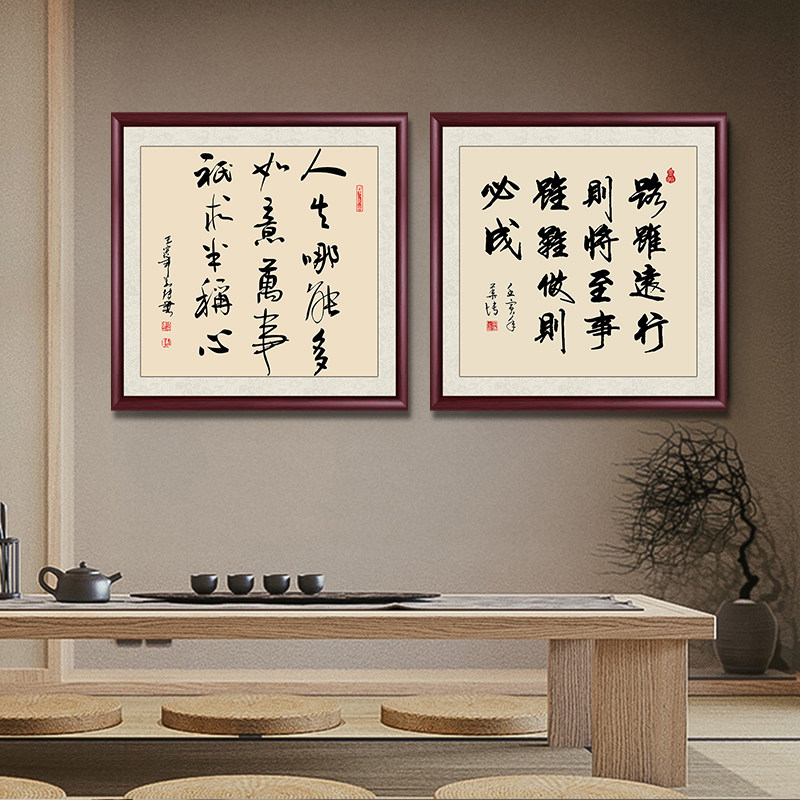 人生哪能多
如意萬事
祇求半稱心
壬寅年
路雖遠行
則將至事
雖難做則
必成
壬寅年